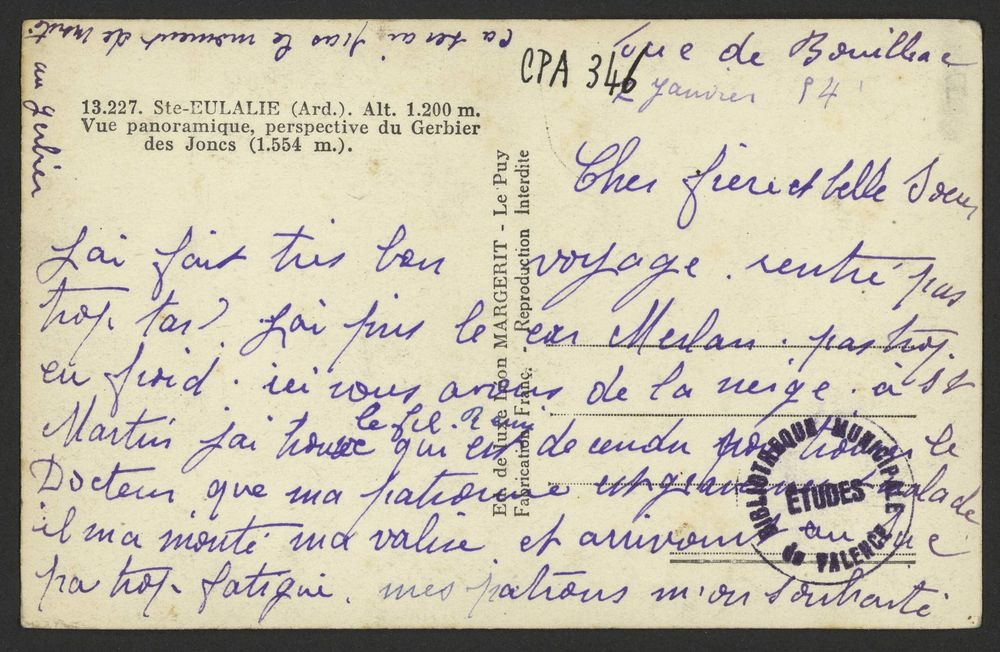 Suc de Bouilhac
2 Janvier 941
CPA 346
13.227. Ste-EULALIE (Ard.). Alt. 1.200 m.
Vue panoramique, perspective du Gerbier
des Joncs (1.554 m.).
Cher frère et belle Soeur
J'ai fait très bon voyage. rentré pas
trop tard. J'ai pris le car Merlan. pas trop
eu froid. ici nous avons de la neige. à St
Martin j'ai trouvé le fils Remi qui est decendu pour le
Docteur que ma patronne malade
il ma monté ma valise et arrivons au Suc
pa trop fatigué. mes patrons m'on souhaité
ça serai pas le moment de monté
au gerbier
Ed. de luxe Léon MARGERIT - Le Puy
Fabrication Franç. - Reproduction Interdite
BIBLIOTHEQUE MUNICIPALE
ÉTUDES
de VALENCE